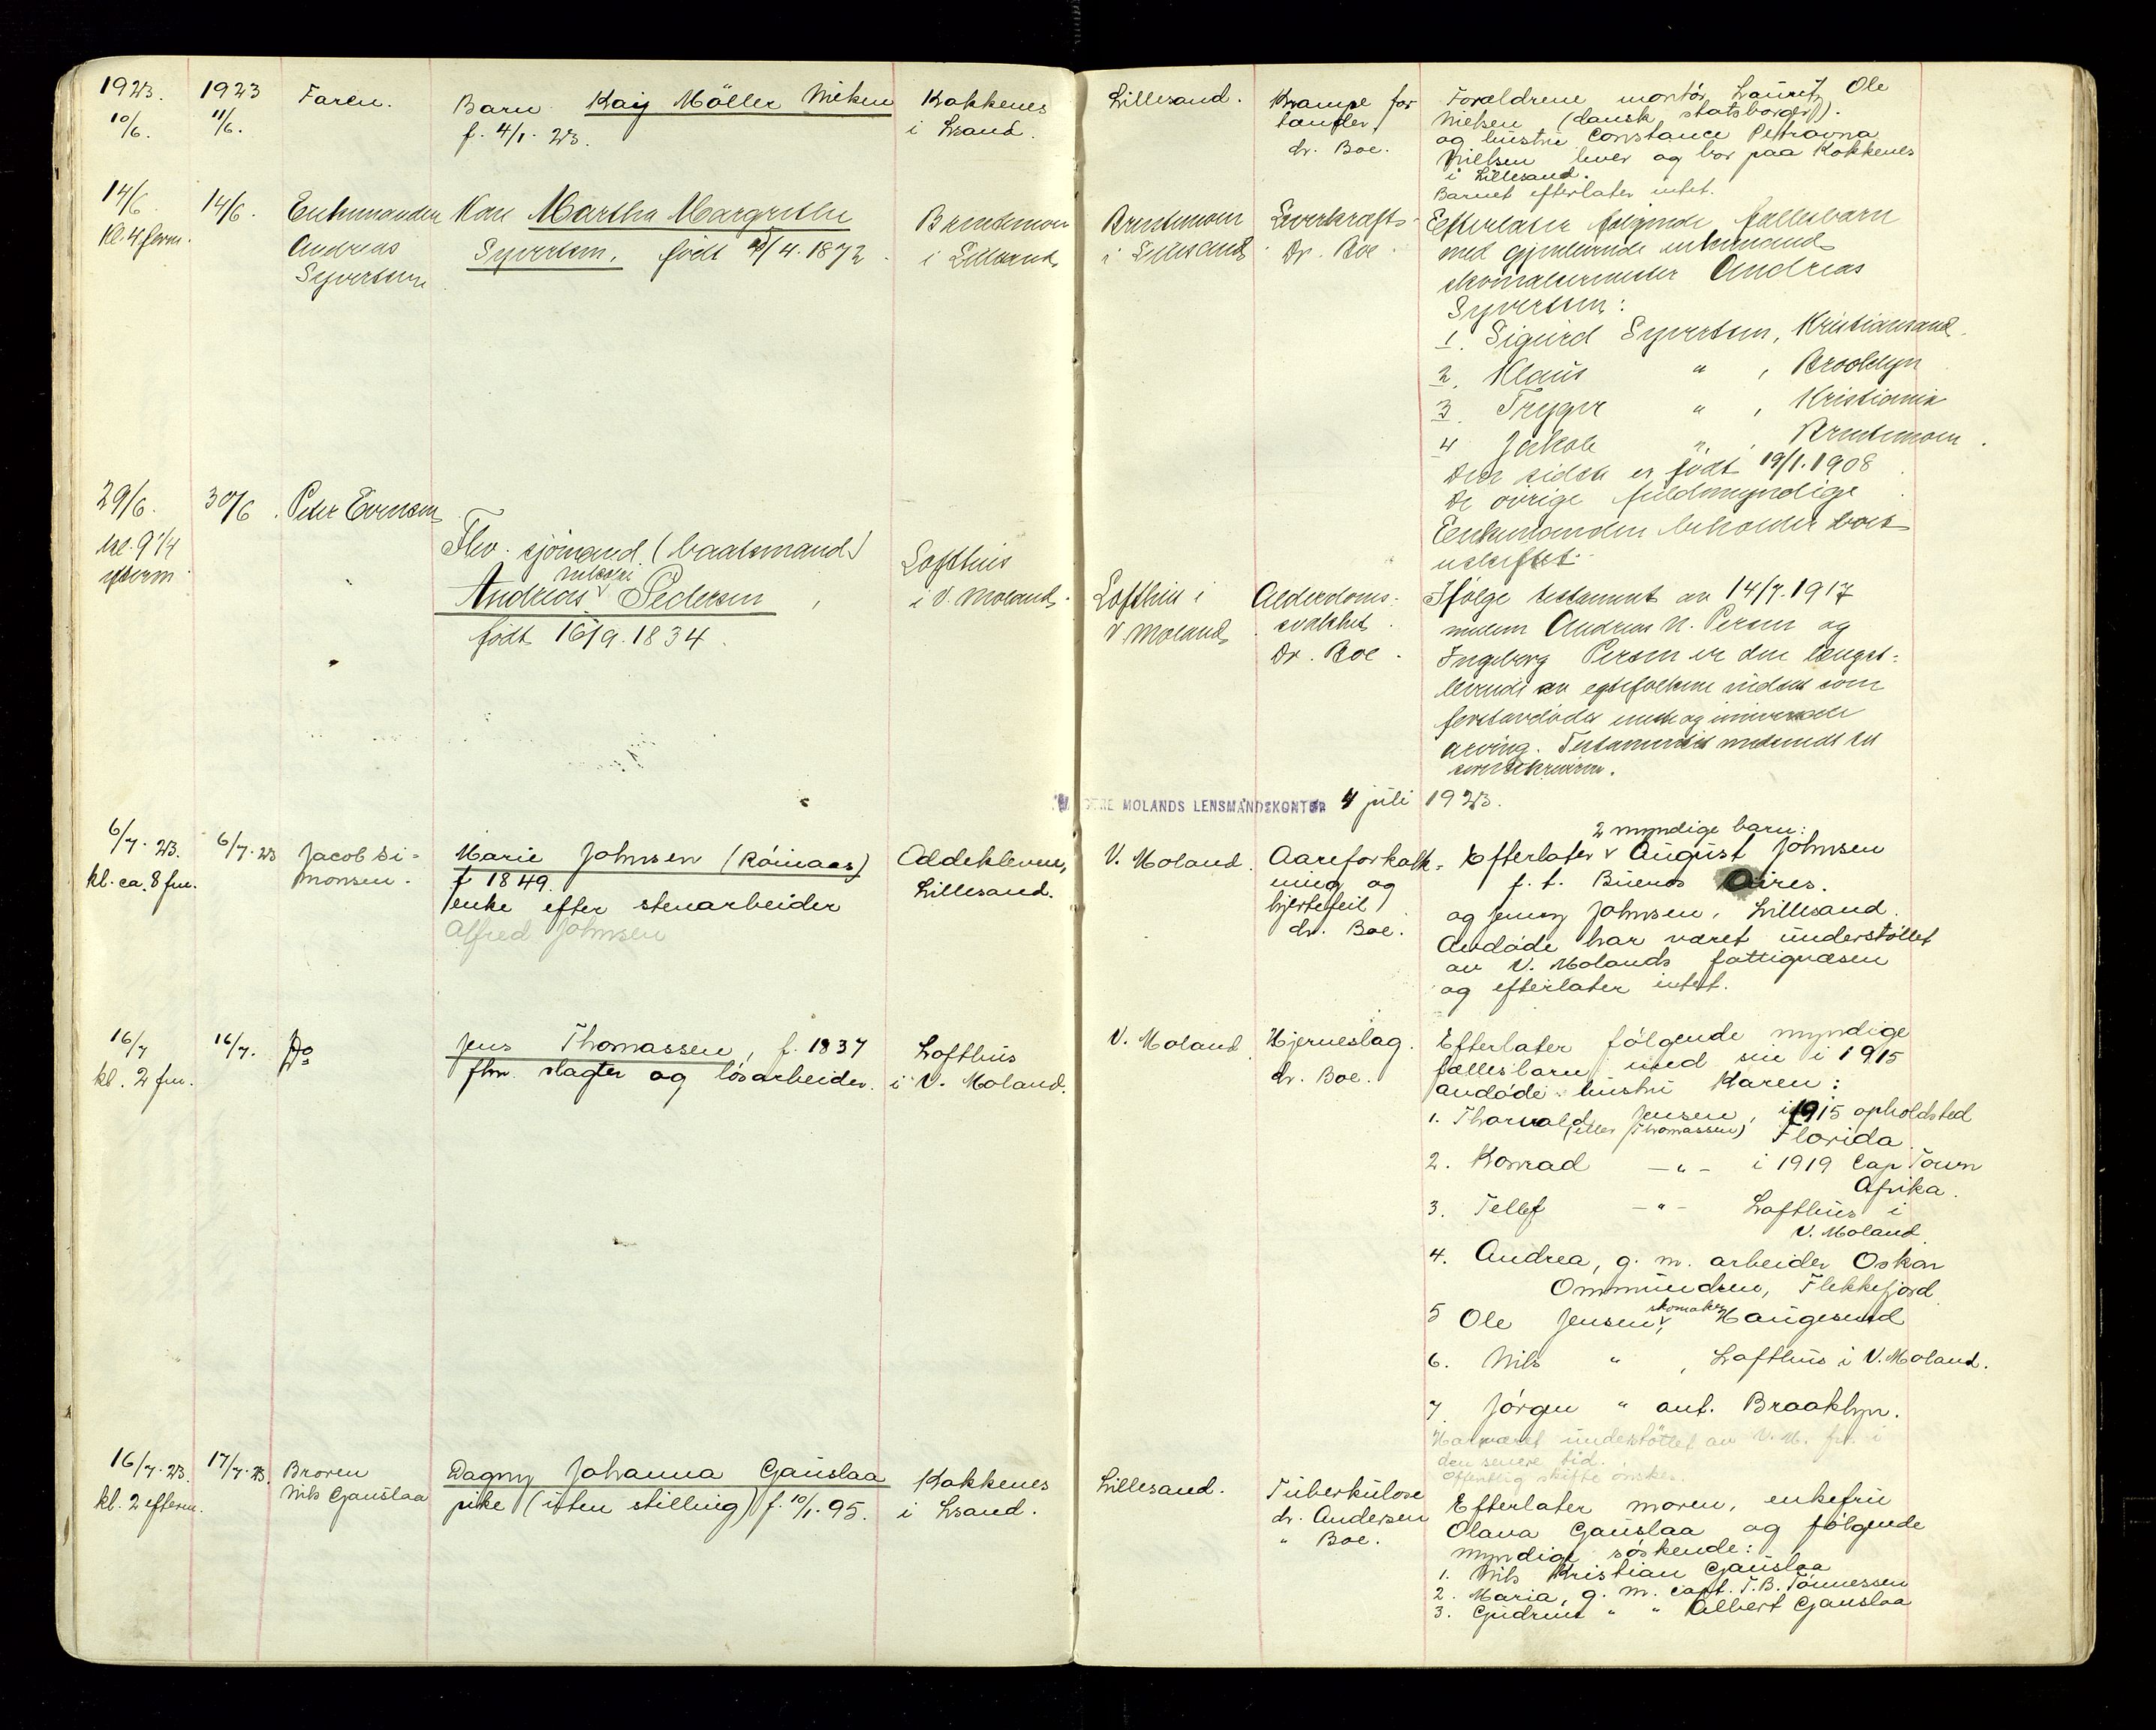 1923.
10/6.
1923
11/6.
Faren.
Barn Kaij Möller Nielsen
f. 4/1. 23.
Kokkenes
i Lsand.
Lillesand.
Krampe for
tænder,
dr. Boe.
Forældrene montör Lauritz Ole
Nielsen (dansk statsborger).
og hustru Constance Petravna
Nielsen lever og bor paa Kokkenes
i Lillesand.
Barnet efterlater intet.
14/6.
Kl. 4 form.
14/6.
Enkemanden
Andreas
Syvertsen
Kone Martha Margrethe
Syvertsen, födt /4. 1872
i Lillesand
i Lillesand
Dr. Boe
Efterlater følgende fællesbarn
med gjenlevende enkemand
skomakermester Andreas
Syvertsen:
1. Sigurd Syvertsen, Kristiansand.
2. Klaus " , Brooklyn
3. Trygve " , Kristiania
4 Jakob " ,
Den sidste er födt 19/1. 1908
De övrige fuldmyndige
Enkemanden beholder boet
uskiftet.
29/6.
kl. 9 1/4
30/6
Peter Evensen
Fhv. sjömand (baatsmand)
Andreas Pedersen,
födt 16/9. 1834.
Lofthus
i V. Moland.
Lofthus i
V. Moland
Alderdoms-
svakhet.
Dr. Boe.
Ifölge testament av 14/7. 1917
mellem Andreas N. Persen og
Ingeborg Persen er den længst-
levende av egtefolkene indsat som
förstavdödes eneste og
arving. Testamentet
sorenskriveren.
MOLANDS LENSMANDSKONTOR 4 juli 1923.
6/7. 23.
kl. ca. 8 fm.
6/7. 23
Jacob Si-
monsen.
Marie Johnsen (Röinaas)
f 1849.
enke efter stenarbeider
Alfred Johnsen
Oddeklevene,
Lillesand.
V. Moland.
Aareforkalk-
ning og
hjertefeil
dr. Boe.
2 myndige barn:
Efterlater August Johnsen
f. t. Buenos Aires.
og Jenny Johnsen, Lillesand.
Avdöde har været understöttet
av V. Molands fattigvæsen
og efterlater intet.
16/7
kl. 2 fm.
16/7.
Do
Jens Thomassen, f. 1837
fhv. slagter og lösarbeider.
Lofthus
i V. Moland.
V. Moland
Hjerneslag.
dr. Boe.
Efterlater fölgende myndige
fællesbarn med sin i 1915
avdöde hustru Karen:
1. Thorvald Jensen, i 1915 opholdsted
(eller Thomassen) Florida.
2. Konrad -"- i 1919 Cap Town
Afrika.
3. Tellef -"- Lofthus i
V. Moland
4. Andrea, g. m. arbeider Oskar
Ommundsen, Flekkefjord
5 Ole Jensen, skomaker Haugesund
6. Nils " , Lofthus i V. Moland.
7. Jörgen " ant. Braaklyn.
Har været understöttet av V. M. i
den senere tid.
Offentlig skifte önskes.
16/7. 23.
kl. 2 efterm.
17/7. 23.
Broren
Nils Gauslaa
Dagny Johanna Gauslaa
pike (uten stilling) f. 10/1. 95.
Kokkenes
i Lsand.
Lillesand.
Tuberkulose
dr. Andersen
" Boe.
Efterlater moren, enkefru
Olava Gauslaa og følgende
myndige söskende:
1. Nils Kristian Gauslaa
2. Maria, g. m. capt. T. B. Tönnessen
3. Gudrun " " Albert Gauslaa